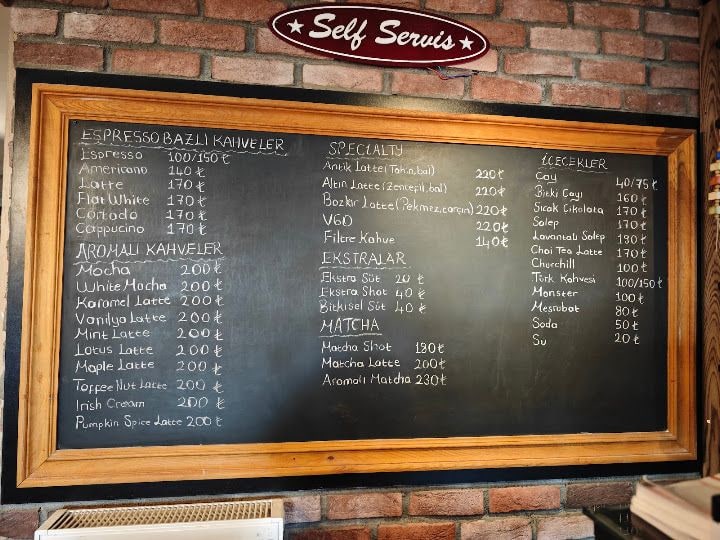 Self Servis
ESPRESSO BAZLI KAHVELER
Espresso 100/150 ₺
Americano 140 ₺
Latte 170 ₺
Flat White 170 ₺
Cortado 170 ₺
Cappucino 170 ₺
AROMALI KAHVELER
Mocha 200 ₺
White Mocha 200 ₺
Karamel Latte 200 ₺
Vanilya Latte 200 ₺
Mint Latte 200 ₺
Lotus Latte 200 ₺
Maple Latte 200 ₺
Toffee Nut Latte 200 ₺
Irish Cream 200 ₺
Pumpkin Spice Latte 200 ₺
SPECIALTY
Antik Latte (Tahin, bal) 220 ₺
Altın Latte (Zencefil, bal) 220 ₺
Bozkır Latte (Pekmez, tarçın) 220 ₺
V60 220 ₺
Filtre Kahve 140 ₺
EKSTRALAR
Ekstra Süt 20 ₺
Ekstra Shot 40 ₺
Bitkisel Süt 40 ₺
MATCHA
Matcha Shot 180 ₺
Matcha Latte 200 ₺
Aromalı Matcha 230 ₺
İÇECEKLER
Çay 40/75 ₺
Bitki Çayı 160 ₺
Sıcak Çikolata 170 ₺
Salep 170 ₺
Lavantalı Salep 190 ₺
Chai Tea Latte 170 ₺
Churchill 100 ₺
Türk Kahvesi 100/150 ₺
Monster 100 ₺
Meşrubat 80 ₺
Soda 50 ₺
Su 20 ₺